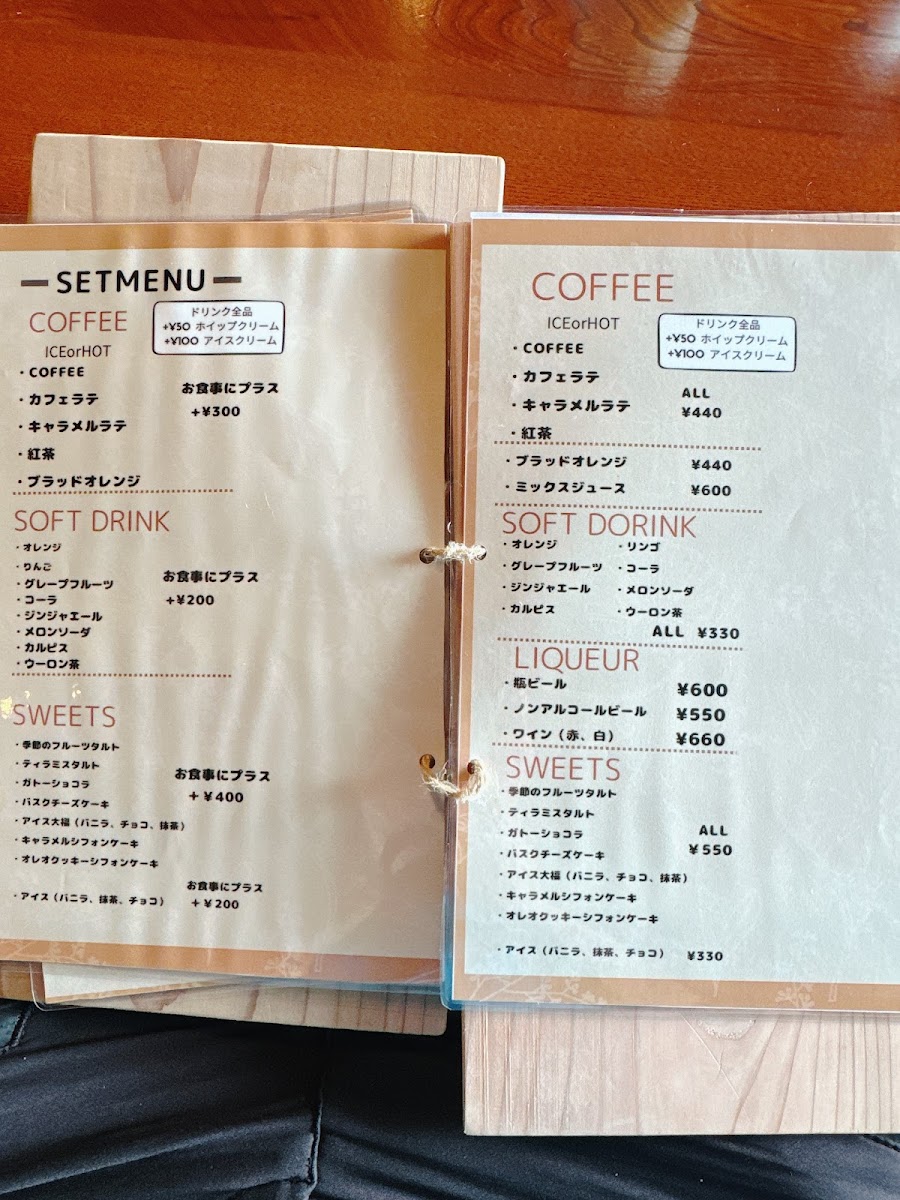 SETMENU
COFFEE
ドリンク全品
+¥50 ホイップクリーム
+¥100 アイスクリーム
ICEorHOT
・COFFEE
・カフェラテ
・キャラメルラテ
・紅茶
・ブラッドオレンジ
お食事にプラス
+¥300
SOFT DRINK
・オレンジ
・りんご
・グレープフルーツ
・コーラ
・ジンジャエール
・メロンソーダ
・カルピス
・ウーロン茶
お食事にプラス
+¥200
SWEETS
・季節のフルーツタルト
・ティラミスタルト
・ガトーショコラ
・バスクチーズケーキ
・アイス大福（バニラ、チョコ、抹茶）
・キャラメルシフォンケーキ
・オレオクッキーシフォンケーキ
お食事にプラス
+¥400
・アイス（バニラ、抹茶、チョコ）
お食事にプラス
+¥200
COFFEE
ドリンク全品
+¥50 ホイップクリーム
+¥100 アイスクリーム
ICEorHOT
・COFFEE
・カフェラテ
・キャラメルラテ
・紅茶
ALL
¥440
・ブラッドオレンジ ¥440
・ミックスジュース ¥600
SOFT DORINK
・オレンジ ・リンゴ
・グレープフルーツ ・コーラ
・ジンジャエール ・メロンソーダ
・カルピス ・ウーロン茶
ALL ¥330
LIQUEUR
・瓶ビール ¥600
・ノンアルコールビール ¥550
・ワイン（赤、白） ¥660
SWEETS
・季節のフルーツタルト
・ティラミスタルト
・ガトーショコラ
・バスクチーズケーキ
・アイス大福（バニラ、チョコ、抹茶）
・キャラメルシフォンケーキ
・オレオクッキーシフォンケーキ
ALL
¥550
・アイス（バニラ、抹茶、チョコ） ¥330